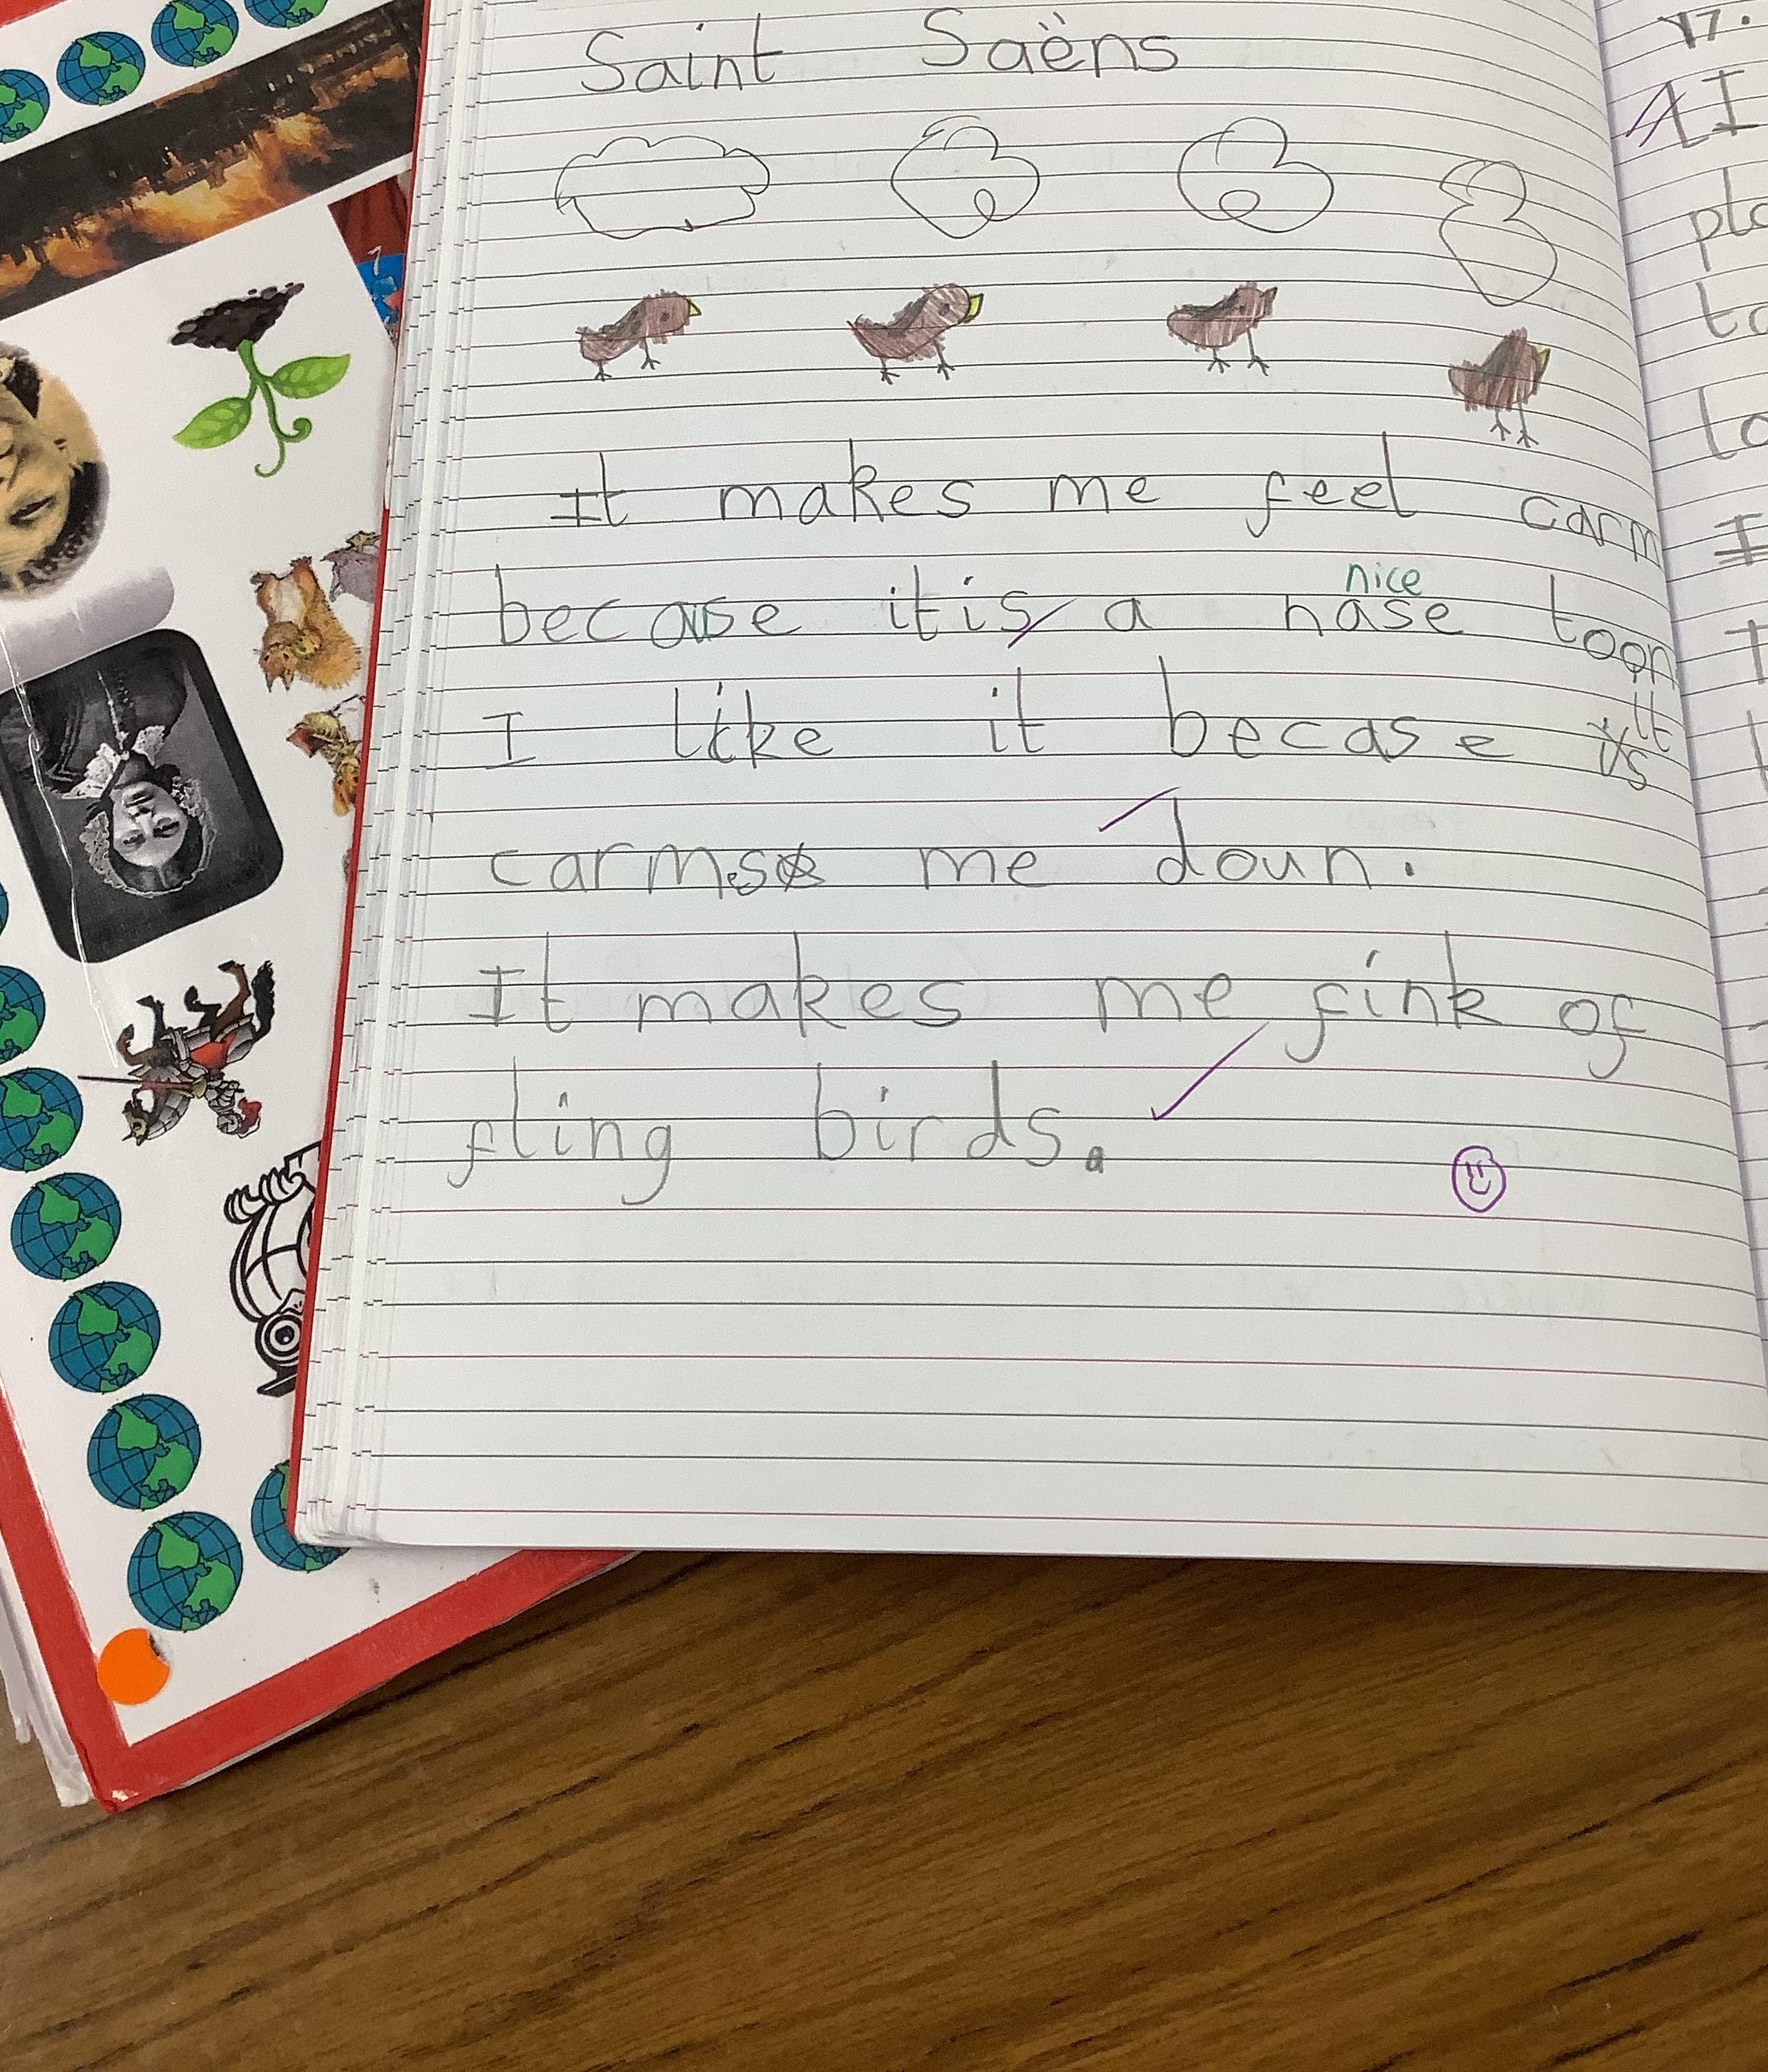 Saint Saëns
It makes me feel carm
because it is a nase toon
nice
I like it becase it
carms me doun.
It makes me fink of
fling birds.
17.
I